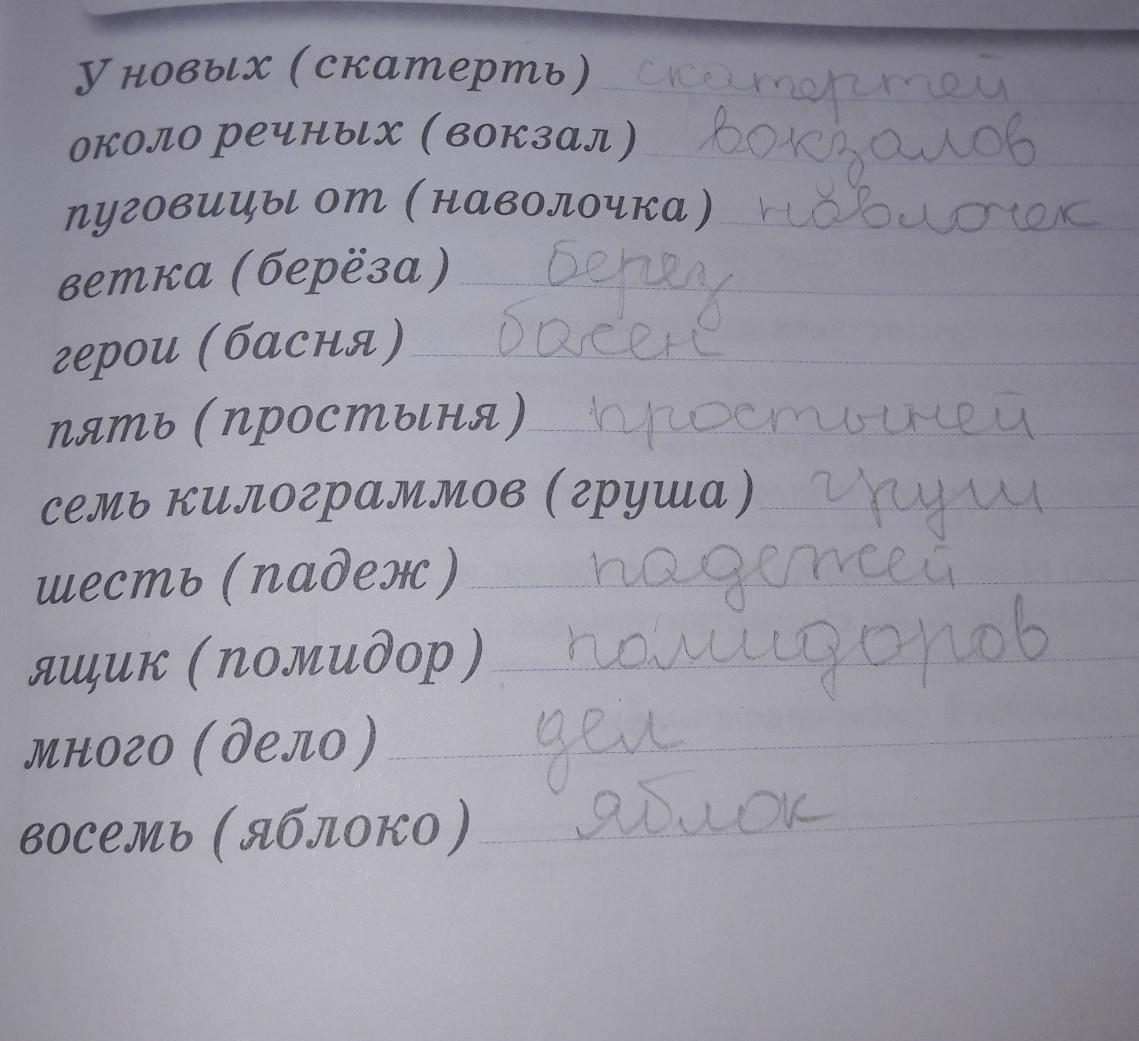 У новых (скатерть) скатертей
около речных (вокзал) вокзалов
пуговицы от (наволочка) навлочек
ветка (берёза) берез
герои (басня) басен
пять (простыня) простыней
семь килограммов (груша) груш
шесть (падеж) падежей
ящик (помидор) помидоров
много (дело) дел
восемь (яблоко) яблок